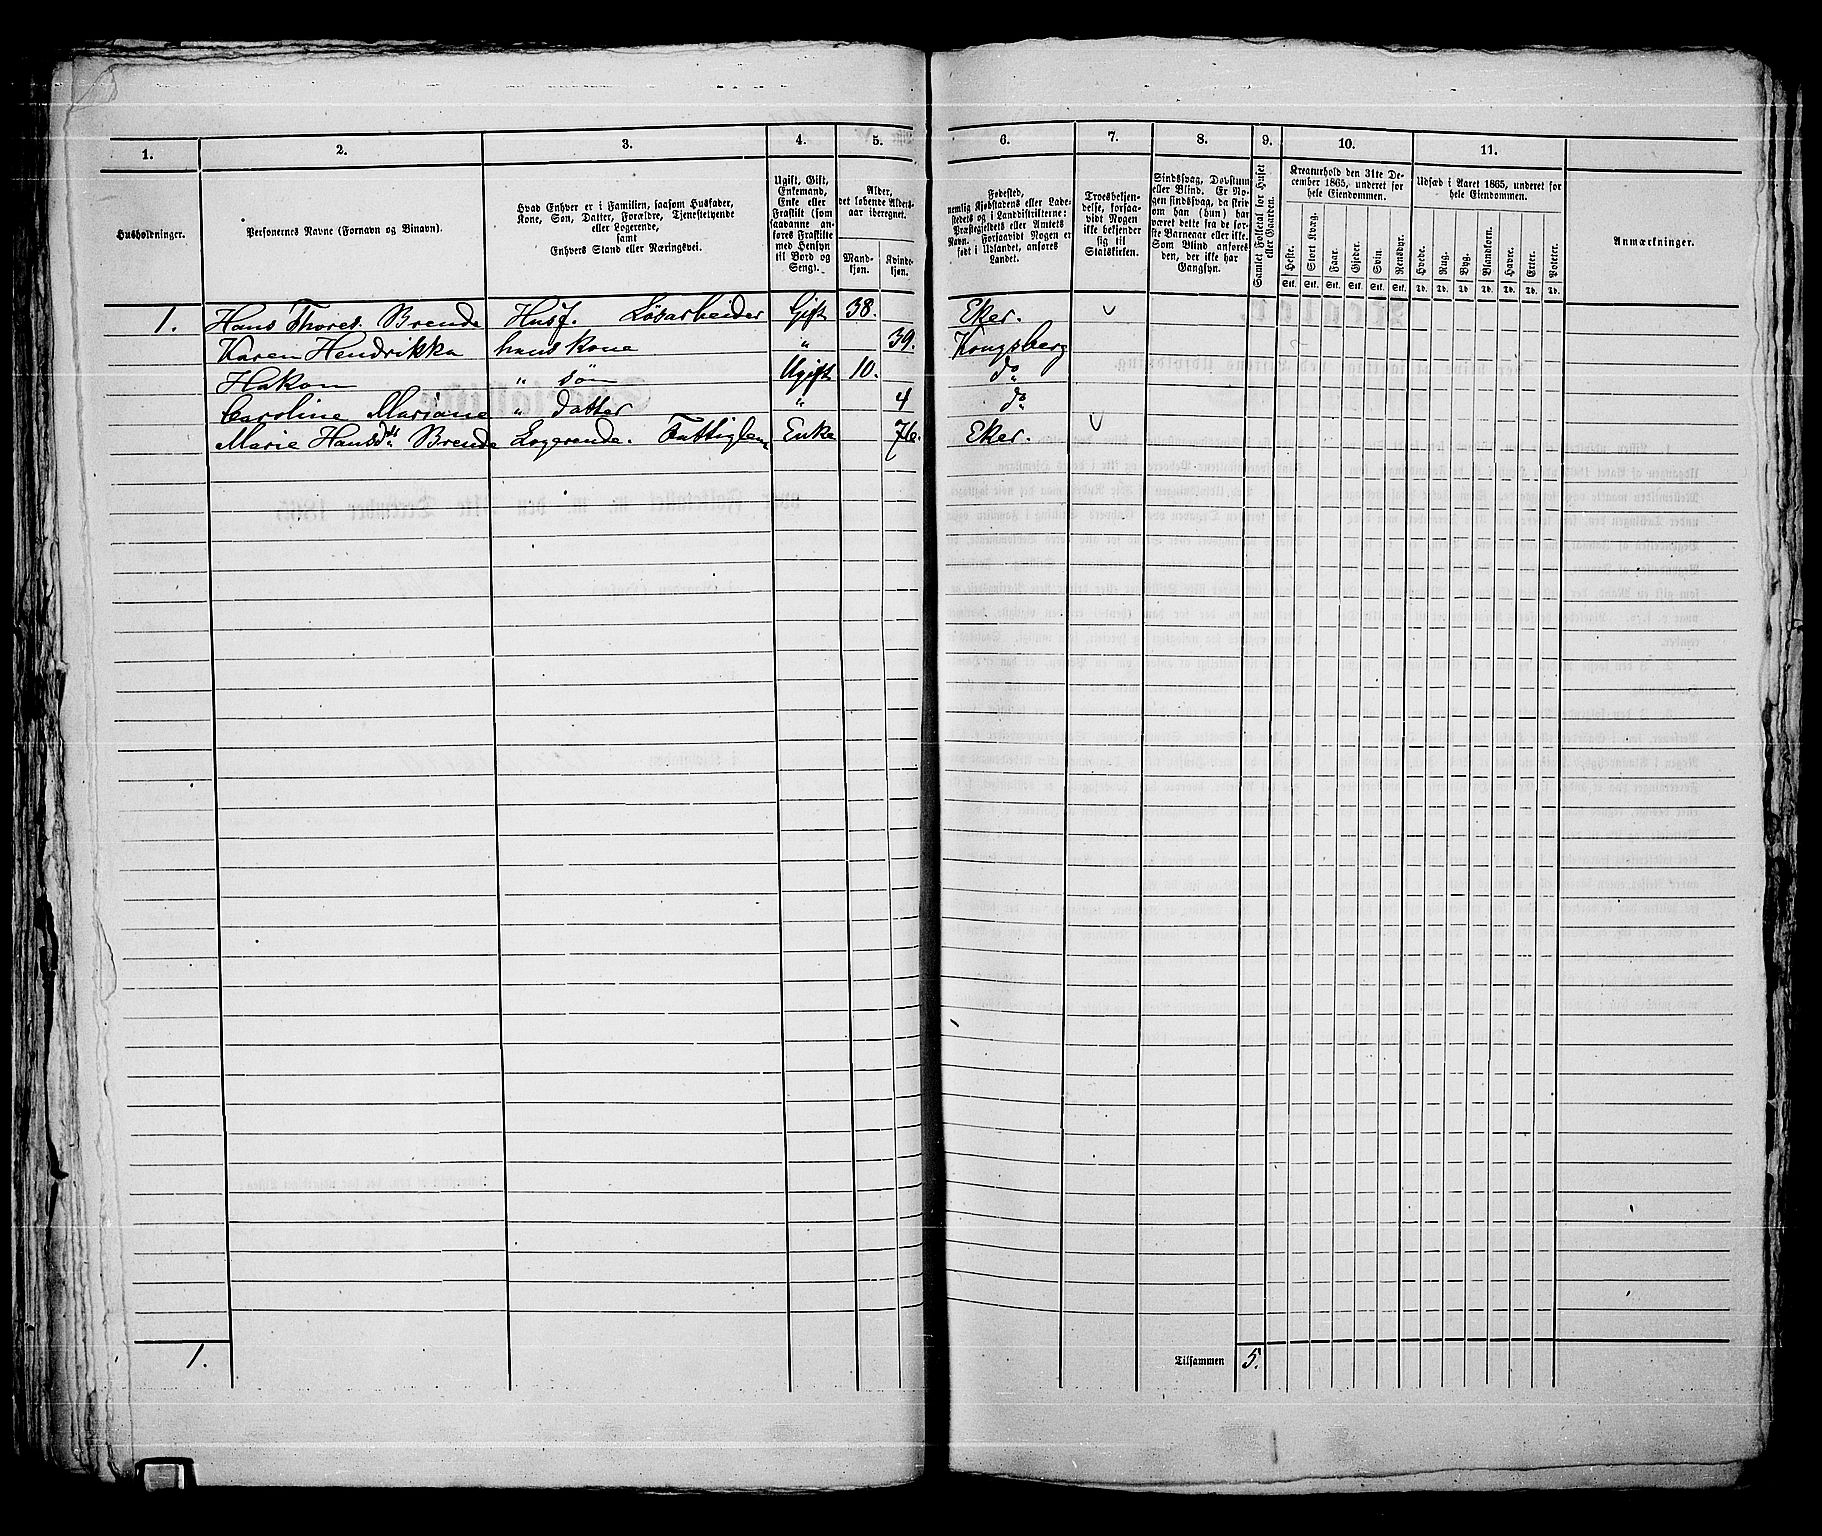 1. 2. 3. 4. 5. 6. 7. 8. 9. 10. 11.
Husholdninger.
Personernes Navne (Fornavn og Binavn).
Hvad Enhver er i Familien, saasom Husfader,
Kone, Søn, Datter, Forældre, Tjenestetyende
eller Logerende,
samt
Enhvers Stand eller Næringsvei.
Ugift, Gift,
Enkemand,
Enke eller
Fraskilt (som
saadanne an-
føres Fraskilte
med Hensyn
til Bord og
Seng).
Alder,
det løbende Alders-
aar iberegnet.
Mand-
kjøn.
Kvinde-
kjøn.
Fødested,
nemlig Kjøbstadens eller Lade-
stedets og i Landdistrikterne:
Præstegjeldets eller Amtets
Navn. Forsaavidt Nogen er
født i Udlandet, anføres
Landet.
Troesbekjen-
delse, forsaa-
vidt Nogen
ikke bekjender
sig til
Statskirken.
Sindssvag, Døvstum
eller Blind. Er No-
gen sindssvag, da skriv
om han (hun) har
været dette fra de før-
ste Barneaar eller ikke.
Som Blind anføres
den, der ikke har
Gangsyn.
Samlet Folketal for Huset
eller Gaarden.
Kreaturhold den 31te De-
cember 1865, underet for
hele Eiendommen.
Heste. Stort Kvæg. Faar. Gjeder. Svin. Rensdyr.
Stk. Stk. Stk. Stk. Stk. Stk.
Udsæd i Aaret 1865, underet for
hele Eiendommen.
Hvede. Rug. Byg. Blandkorn. Havre. Erter. Poteter.
Td. Td. Td. Td. Td. Td. Td.
Anmærkninger.
1. Hans Thores. Brende Husf. Løsarbeider Gift 38. Eker.
Karen Hendrikka hans kone " 39. Kongsberg
Hakon " søn Ugift 10. do
Caroline Mariane " datter " 4 do
Marie Hansdtr Brende Logerende. Fattiglem Enke 76. Eker.
1. Tilsammen 5.